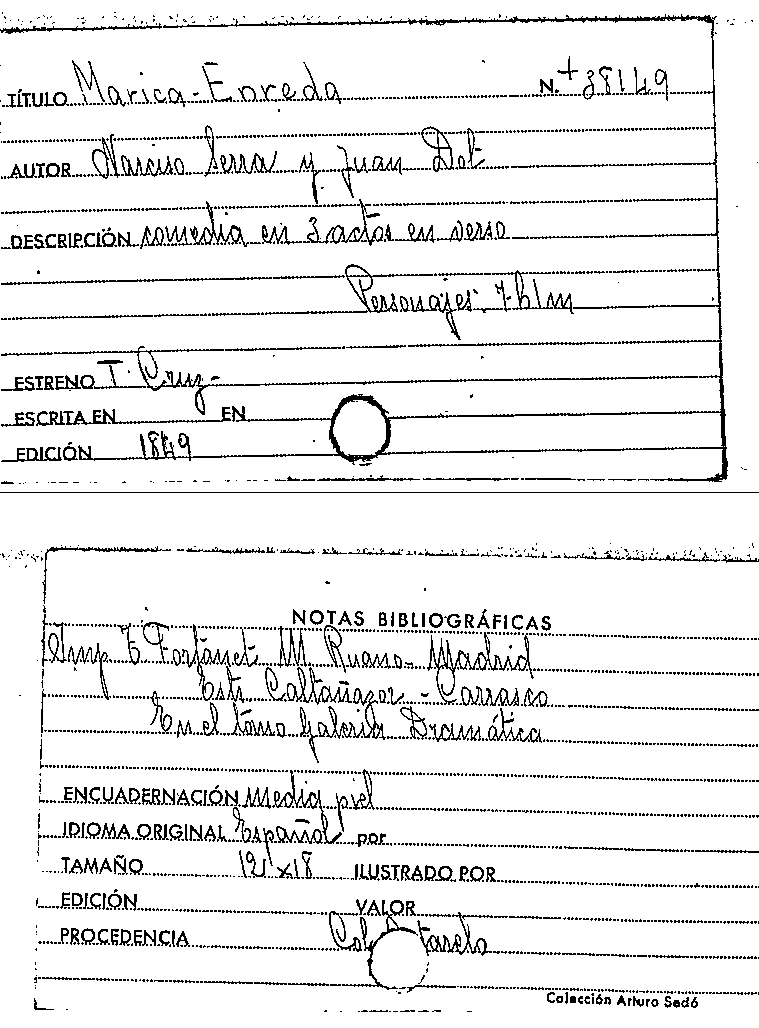 TÍTULO Marica-Enreda N. +38149
AUTOR Narciso Serra y Juan Dot
DESCRIPCIÓN comedia en 3 actos en verso
Personajes. 7 h 1 m
ESTRENO T. Cruz-
ESCRITA EN EN
EDICIÓN 1849
NOTAS BIBLIOGRÁFICAS
Imp T Fortanet M Ruano- Madrid
Estr Caltañazor - Carrasco
En el tomo Galeria Dramática
ENCUADERNACIÓN Media piel
IDIOMA ORIGINAL Español por
TAMAÑO x18 ILUSTRADO POR
EDICIÓN VALOR
PROCEDENCIA Col
Colección Arturo Sedó